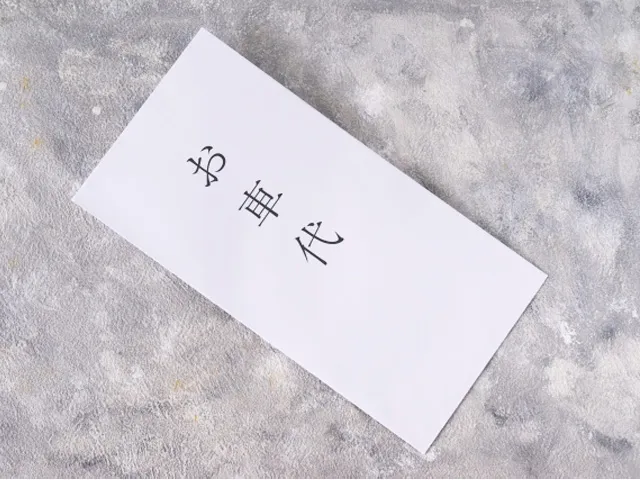 お車代